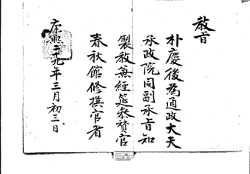 教旨
朴慶後為通政大夫
承政院同副承旨知
製教兼經筵參贊官
春秋館修撰官者
康熙九年三月初三日